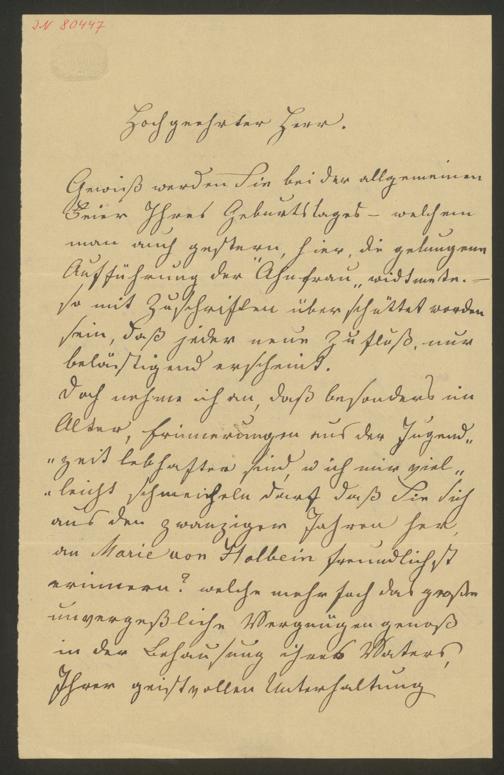 IN 80447
Hochgeehrter Herr.
Gewiß werden Sie bei der allgemeinen
Feier Ihres Geburtstages – welchem
man auch gestern, hier, die gelungene
Aufführung der "Ahnfrau" widtmete. –
so mit Zuschriften überschüttet worden
sein, daß jeder neue Zufluß, nur
belästigend erscheint.
Doch nehme ich an, daß besonders im
Alter, Erinnerungen aus der Jugend„
„zeit lebhafter sind, u ich mir viel„
„leicht schmeicheln darf daß Sie sich
aus den zwanziger Jahren her,
an Marie von Holbein freundlichst
erinnern? welche mehrfach das große
unvergeßliche Vergnügen genoß
in der Behausung ihres Vaters,
Ihrer geistvollen Unterhaltung